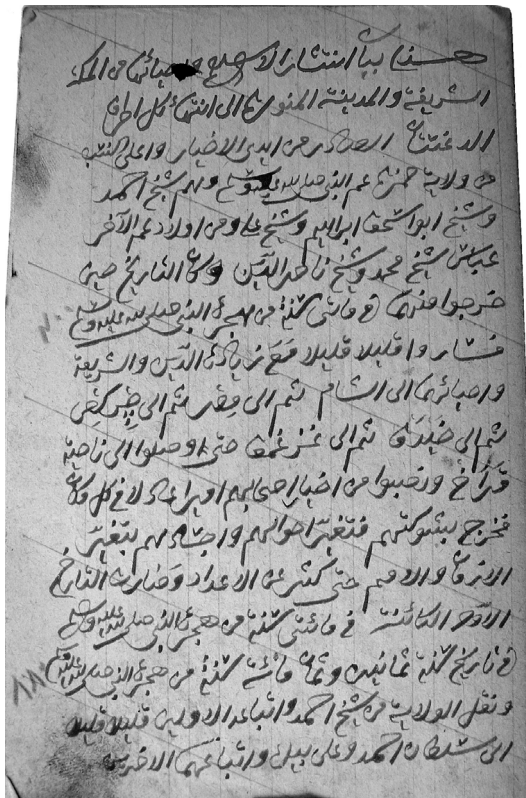 هذا بيان انتشار الاسلام واحيائها من المكة
الشريفة والمدينة المنورة الى انتهائ كل اطراف
الداغستان الصادر من ايدى الاخيار واعلى الكتب
من ولاية حمزة عم النبى صلى الله عليه وسلم وهم شيخ احمد
وشيخ ابو اسحق ابراهيم وشيخ على ومن اولاد عم الآخر
عباس شيخ محمد وشيخ ناصر الدين وكان التاريخ حين
خرجوا منها فى مائتى سنة من هجرة النبى صلى الله عليه وسلم ٢٠٠
فساروا قليلا قليلا مع زيادة الدين والشريعة
واحيائها الى الشام ثم الى مصر ثم الى
ثم الى ثم الى غز غمق حتى اوصلوا الى ناحية
ونصبوا من اخيار اصحابهم اميرا عادلا فى كل مكان
فخرج بشوكتهم فتغير احوالهم واجسادهم بتغير
الازمان والامم حتى كثر من الاعداد وصارت التاريخ
الآخر الكائنة فى مائتى سنة من هجرة النبى صلى الله عليه وسلم
فى تاريخ سنة ثمانين وثمان مائة سنة من هجرة النبى صلى الله عليه وسلم ٨٨٠
ونقل الولاية من شيخ احمد واتباعه الاولين قليلا قليلا
الى سلطان احمد وعلى بيك واتباعهما الاخرين